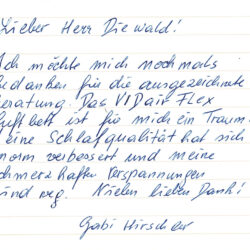 Lieber Herr Diewald!
Ich möchte mich nochmals
bedanken für die ausgezeichnete
Beratung. Das VIDair Flex
Luftbett ist für mich ein Traum.
Meine Schlafqualität hat sich
enorm verbessert und meine
schmerzhaften Verspannungen
sind weg. Vielen lieben Dank!
Gabi Hirscher